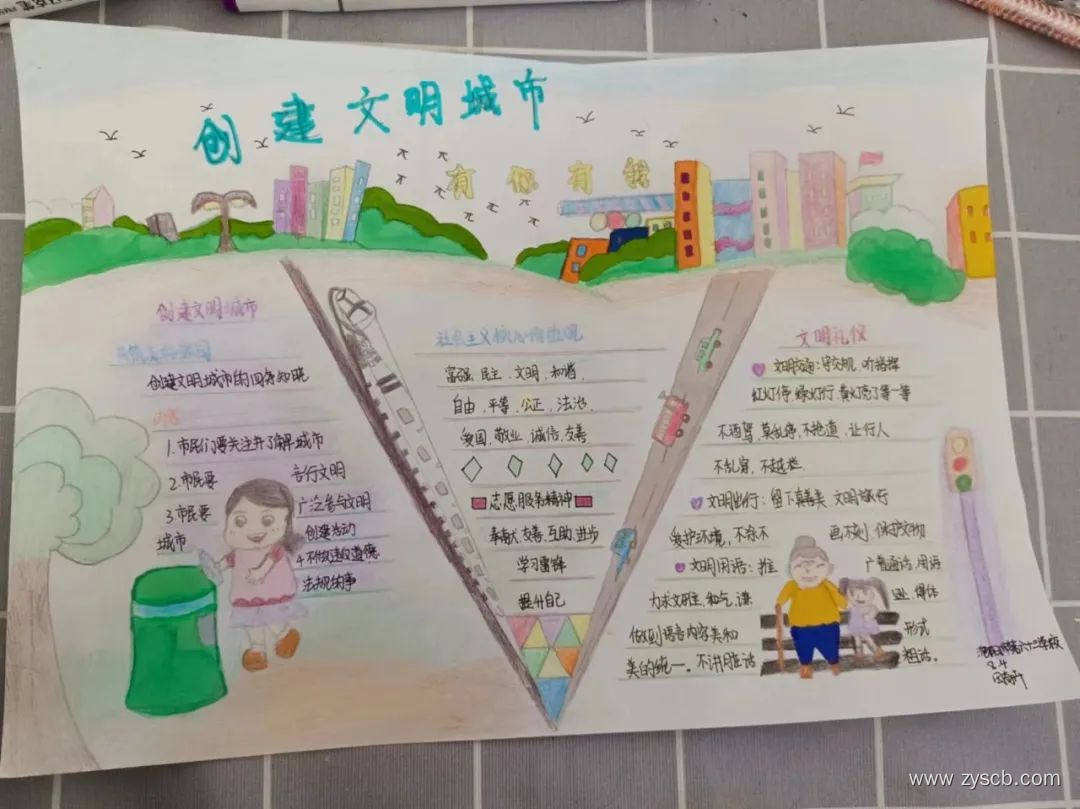 创建文明城市
有你有我
创建文明城市
共筑美好家园
创建文明城市的四条知晓
内容
1.市民们要关注并了解城市
2.市民要言行文明
3.市民要广泛参与文明
城市创建活动
4.不做违反道德
法规的事
社会主义核心价值观
富强、民主、文明、和谐、
自由、平等、公正、法治、
爱国、敬业、诚信、友善
志愿服务精神
奉献、友善、互助、进步
学习雷锋
提升自己
文明礼仪
文明交通:守交规、听指挥
红灯停,绿灯行,黄灯亮了等一等
不酒驾,莫乱停,不抢道,让行人
不乱穿,不越栏.
文明出行:留下真善美,文明旅行
爱护环境,不涂不画不刻,保护文物
文明用语:推广普通话,用语
力求文明,和气,谦逊,得体
做到语言内容美和形式
美的统一。不讲脏话粗话。
第六十二学校
3.4
www.zyscb.com